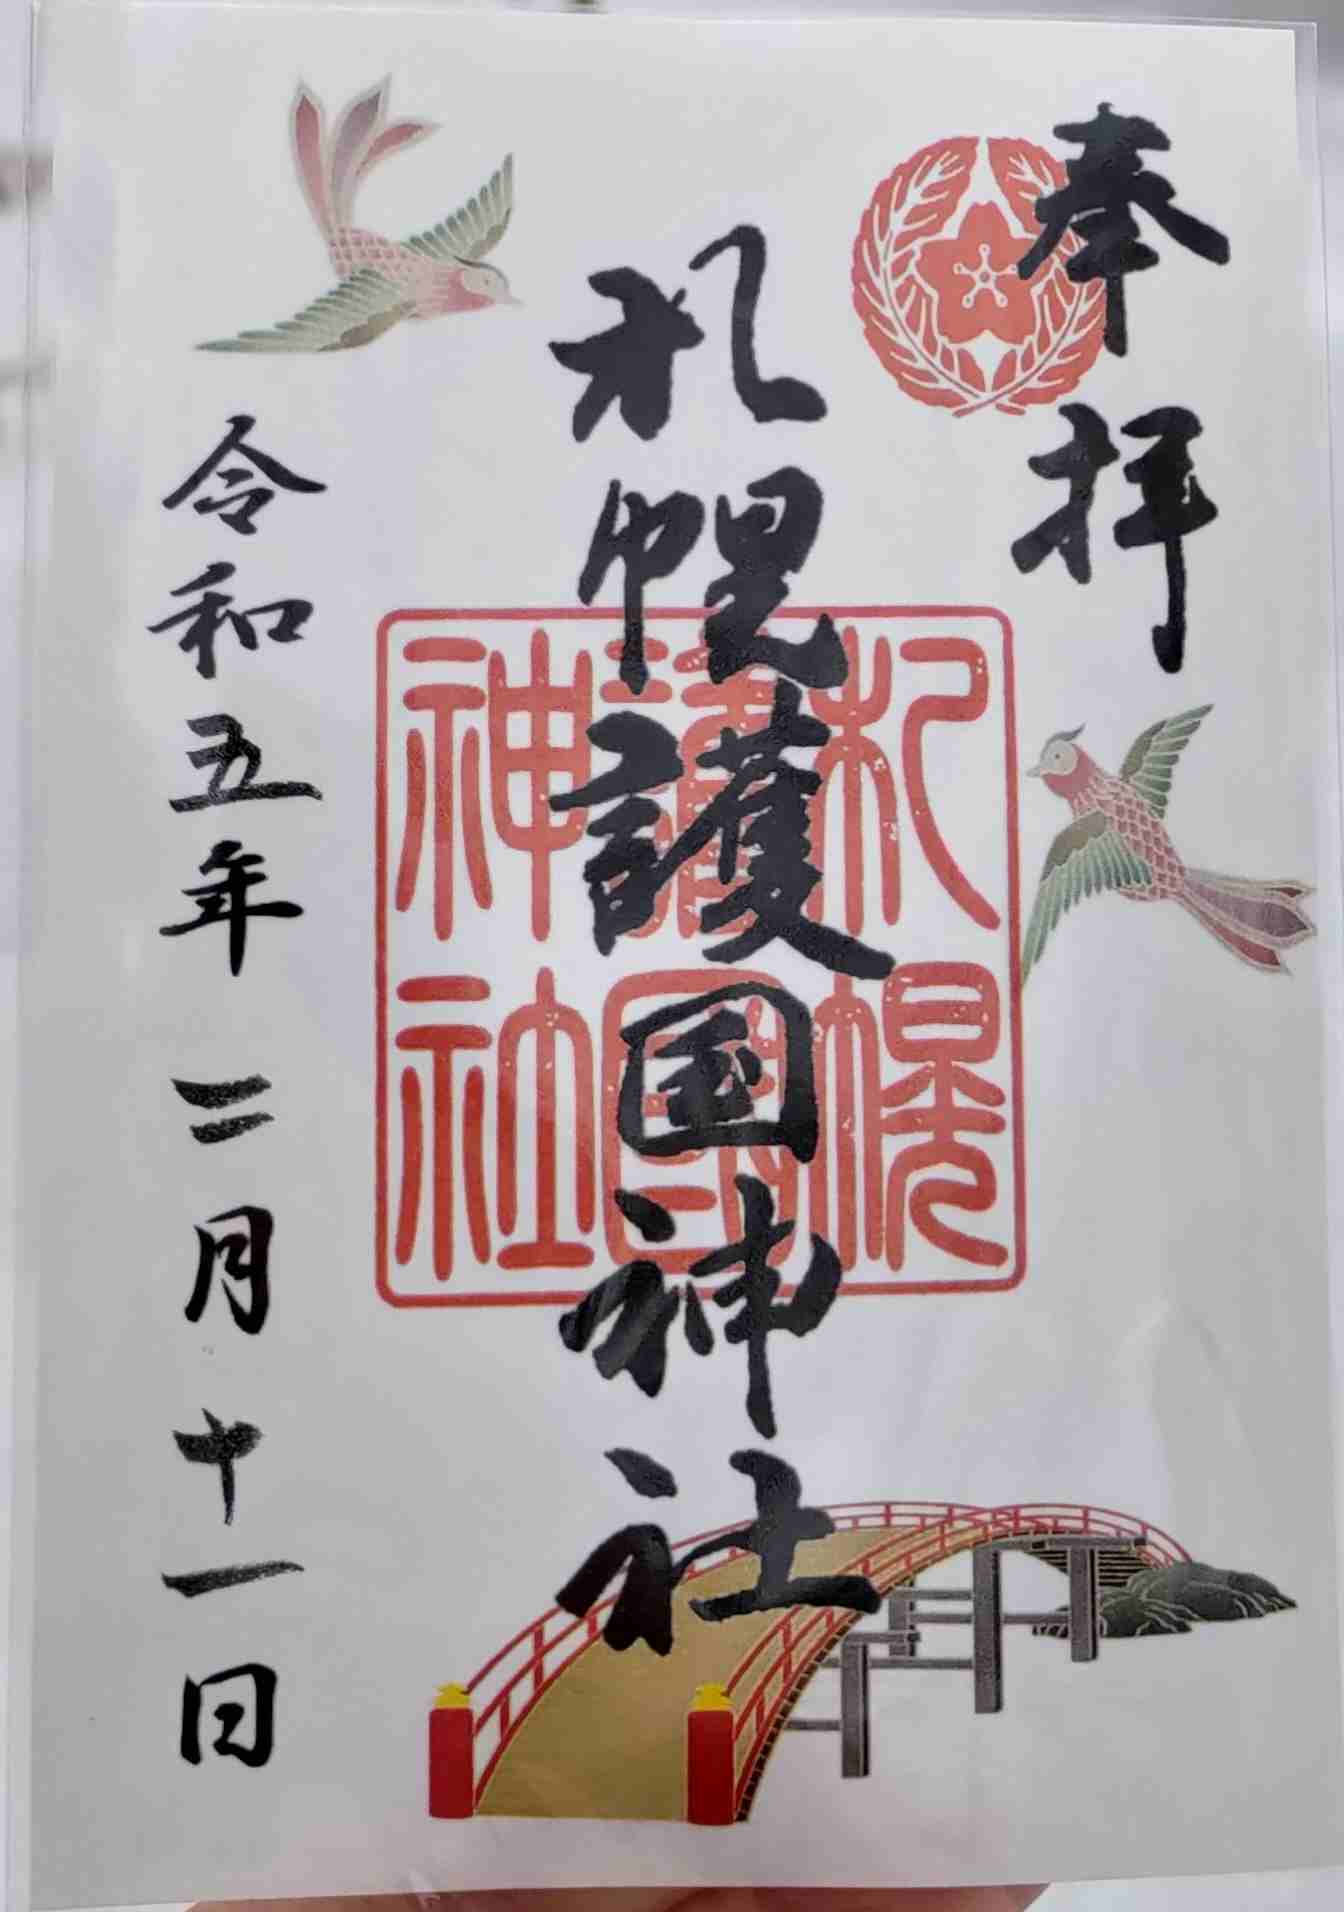 奉拝
札幌護国神社
令和五年 二月十一日
札幌
護國
神社